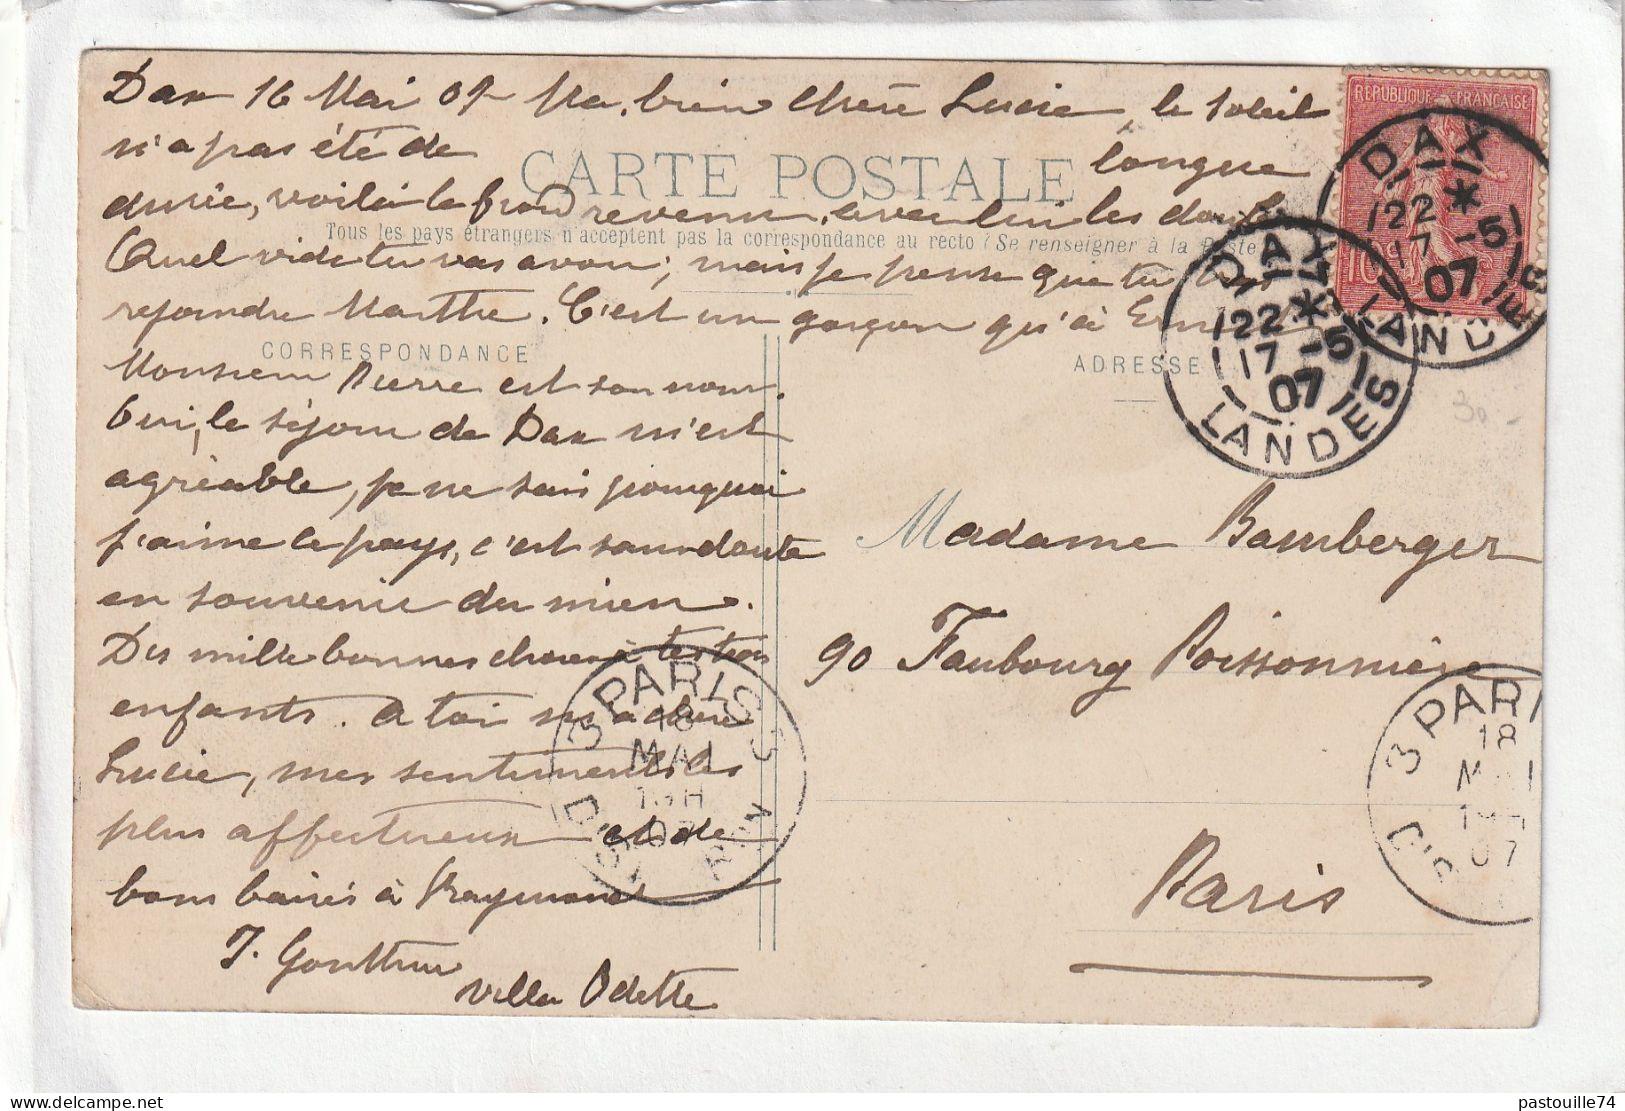 Dax 16 Mai 07 Ma bien chère Lucie, le soleil
n'a pas été de longue
CARTE POSTALE
durée, voilà le froid revenu, avec lui les
Tous les pays étrangers n'acceptent pas la correspondance au recto (Se renseigner à la Poste
Quel vide tu vas avoir; mais je pense que tu
rejoindre Marthe. C'est un garçon qu'a
CORRESPONDANCE
Monsieur Pierre est son nom.
Oui, le séjour de Dax m'est
agréable, je ne sais pourquoi
j'aime le pays, c'est sans doute
en souvenir du mien.
Des mille bonnes choses à tes trois
enfants. A toi ma chère
Lucie, mes sentiments les
plus affectueux et de
bons baisers à Raymond
J. Gonthier
villa Odette
REPUBLIQUE FRANÇAISE
10
DAX
22 *
17 -5
07
LANDES
DAX
22 *
17 -5
07
LANDES
ADRESSE
30 -
Madame Bamberger
90 Faubourg Poissonnière
Paris
3 PARIS 3
18
MAI
07
3 PARI
18
07
pastouille74